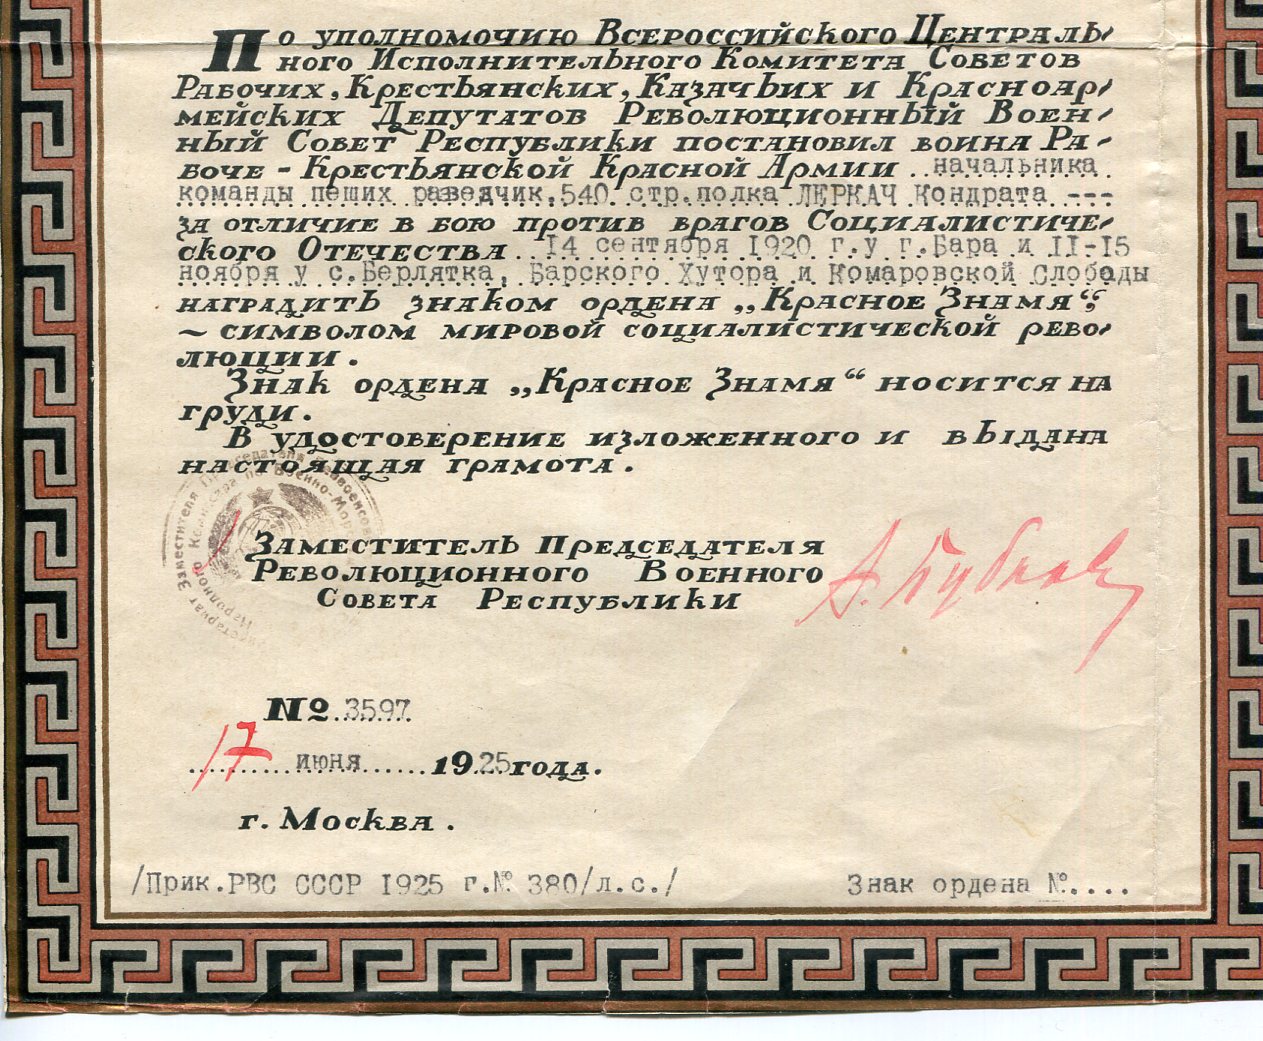 По уполномочию Всероссийского Централь-
ного Исполнительного Комитета Советов
Рабочих, Крестьянских, Казачьих и Красноар-
мейских Депутатов Революционный Воен-
ный Совет Республики постановил воина Ра-
боче-Крестьянской Красной Армии начальника
команды пеших разведчик. 540 стр. полка ЛЕРКАЧ Кондрата ---
за отличие в бою против врагов Социалистиче-
ского Отечества 14 сентября 1920 г. у г. Бара и 11-15
ноября у с. Берлятка, Барского Хутора и Комаровской Слободы
наградить знаком ордена „Красное Знамя“,
– символом мировой социалистической рево-
люции.
Знак ордена „Красное Знамя“ носится на
груди.
В удостоверение изложенного и выдана
настоящая грамота.
Заместителя Председателя Реввоенсов
Народного Комиссара по Военно-Мор
Заместитель Председателя
Революционного Военного
Совета Республики
А. Бубнов
№ 3597
17 июня 1925 года.
г. Москва.
/Прик. РВС СССР 1925 г. № 380/л.с./ Знак ордена №....